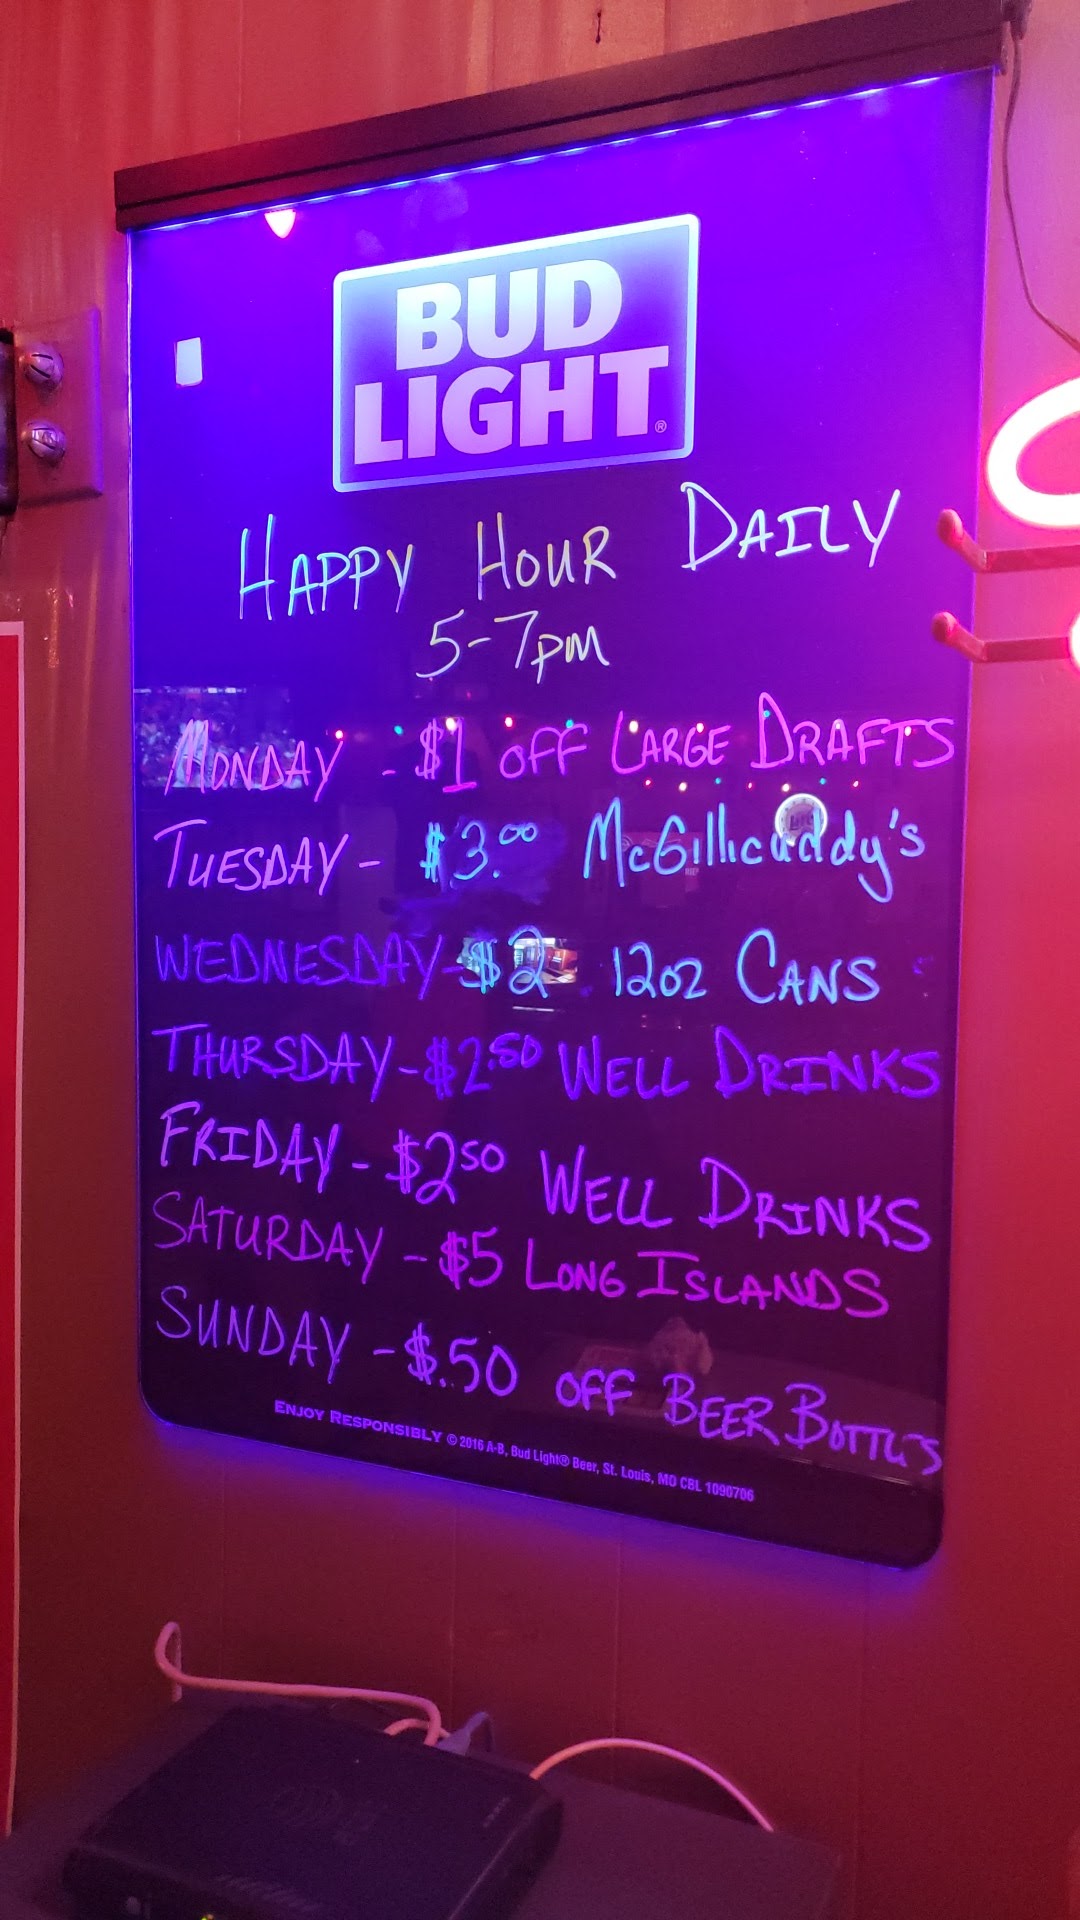 BUD
LIGHT®
HAPPY HOUR DAILY
5-7pm
MONDAY - $1 OFF LARGE DRAFTS
TUESDAY - $3.00 McGillicuddy's
WEDNESDAY - $2 12oz CANS
THURSDAY - $2.50 WELL DRINKS
FRIDAY - $2.50 WELL DRINKS
SATURDAY - $5 LONG ISLANDS
SUNDAY - $.50 OFF BEER BOTTLES
ENJOY RESPONSIBLY © 2016 A-B, Bud Light® Beer, St. Louis, MO CBL 1090706